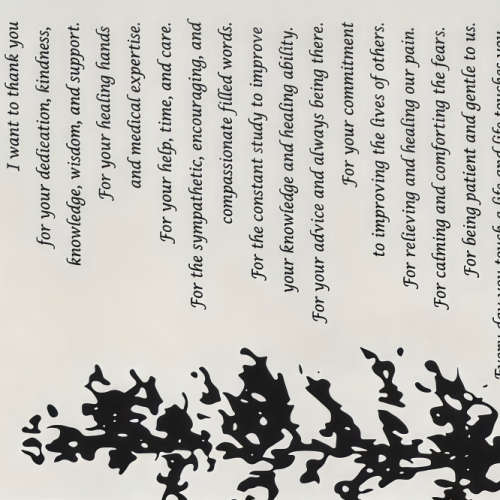 I want to thank you
for your dedication, kindness,
knowledge, wisdom, and support.
For your healing hands
and medical expertise.
For your help, time, and care.
For the sympathetic, encouraging, and
compassionate filled words.
For the constant study to improve
your knowledge and healing ability.
For your advice and always being there.
For your commitment
to improving the lives of others.
For relieving and healing our pain.
For calming and comforting the fears.
For being patient and gentle to us.